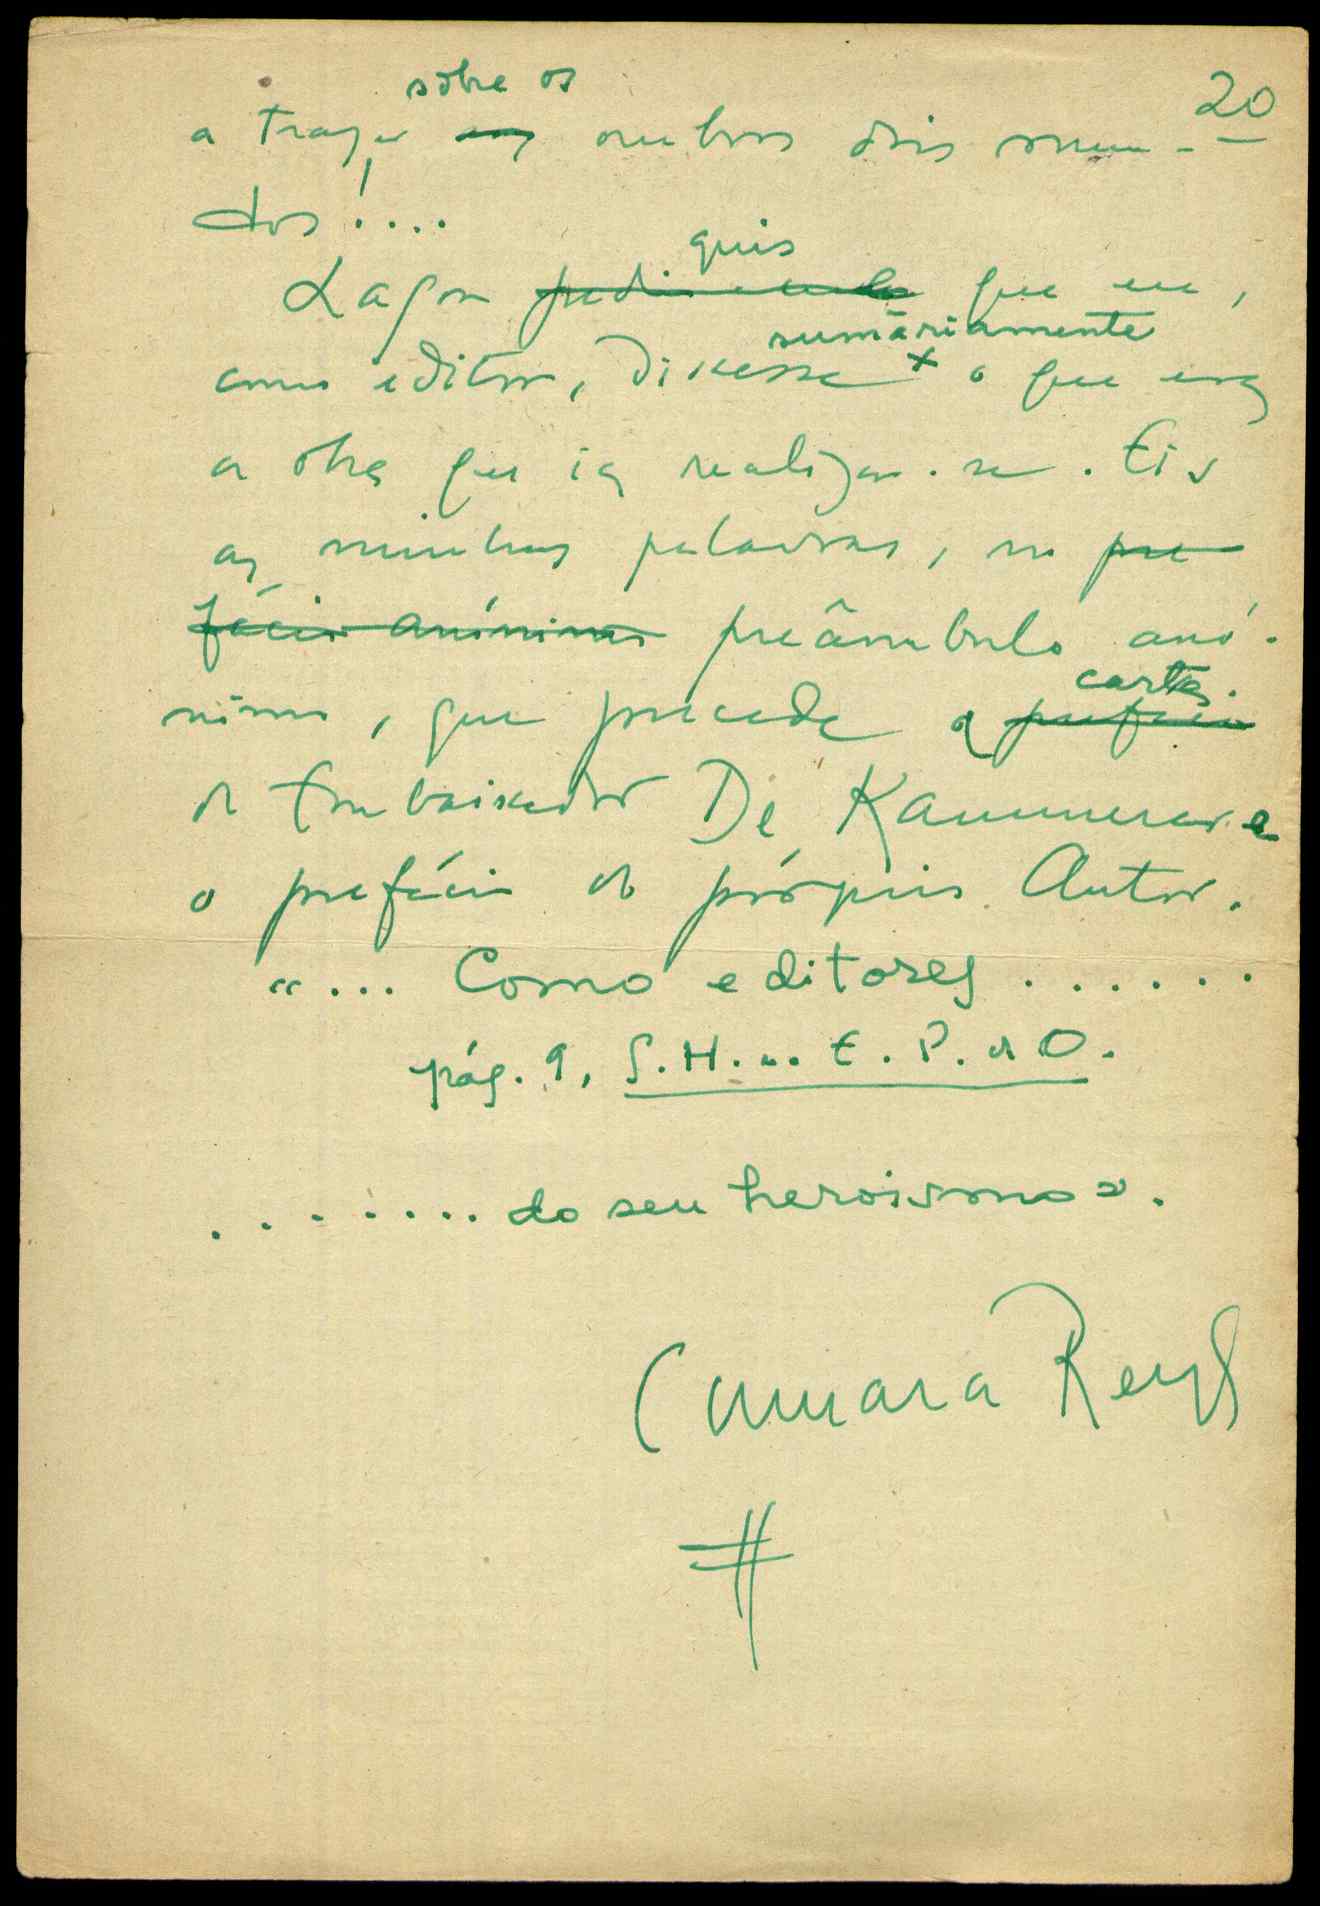 20
sôbre os
a traçar aos outros dois mun-
dos!....
quis
Lapon que eu,
sumàriamente
como editor, dissesse x o que era
a obra que ia realizar-se. Eis
as minhas palavras, no pre-
fácio anónimo preâmbulo anó-
carta
nimo, que precede a prefácio
do Embaixador De Kammerer e
o prefácio do próprio Autor.
"... Como editores ......
pág. 9, S.H... E.P. do O.
........ do seu heroismo».
Camara Reys